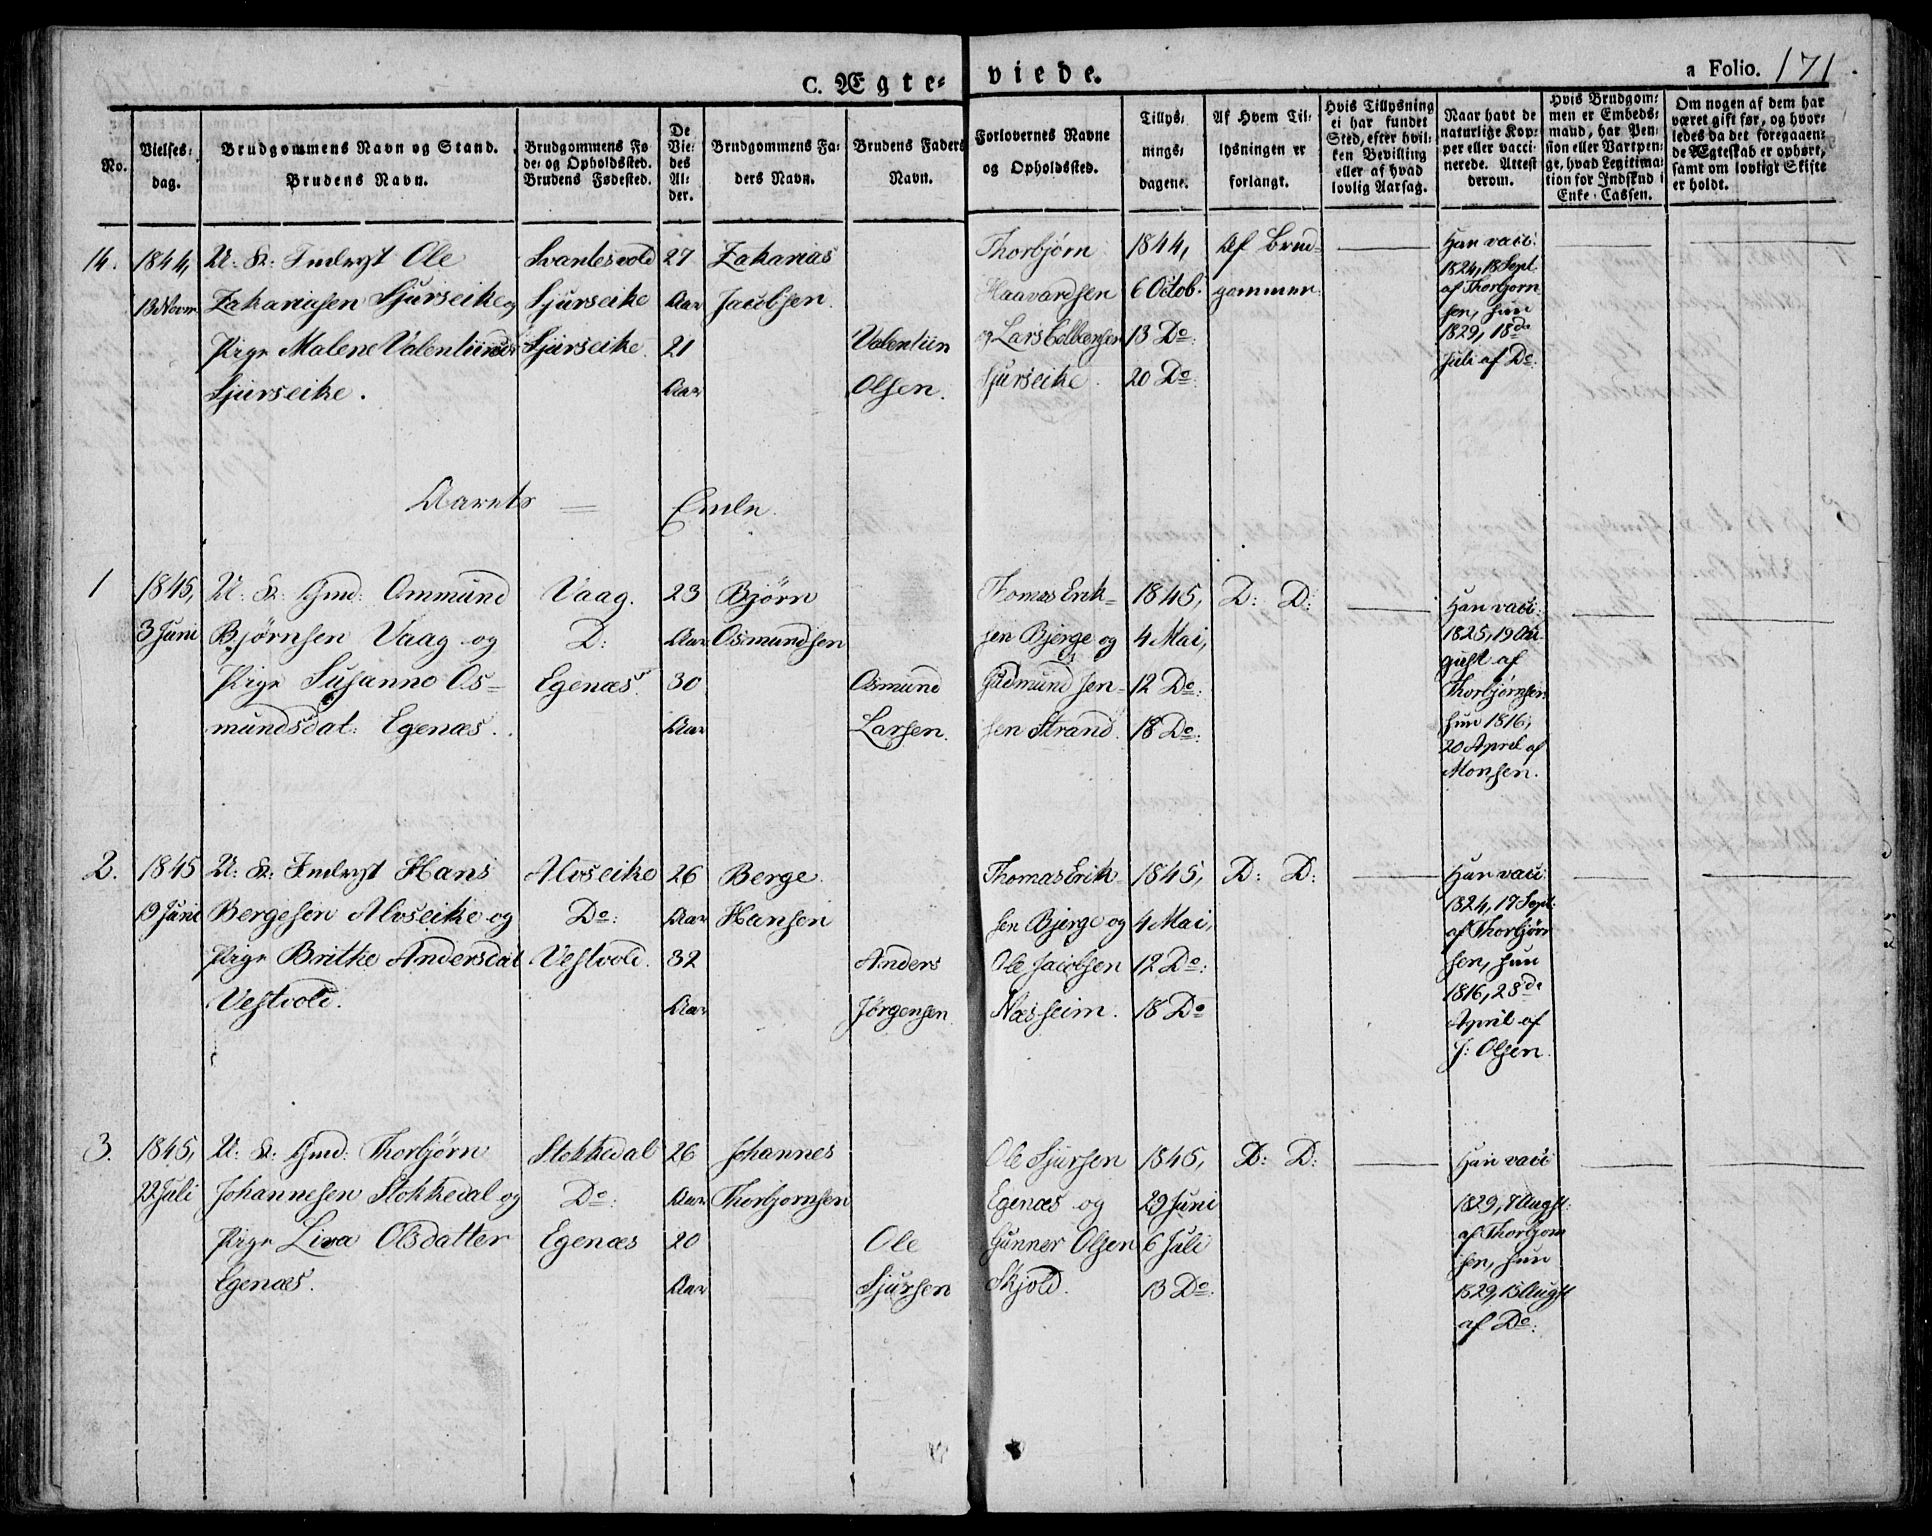 C. Ægte-viede.
a Folio. 171.
No.
Vielses-
dag.
Brudgommens Navn og Stand.
Brudens Navn.
Brudgommens Fø-
de- og Opholdssted.
Brudens Fødested.
De
Vie-
des
Al-
der.
Brudgommens Fa-
ders Navn.
Brudens Faders
Navn.
Forlovernes Navne
og Opholdssted.
Tillys-
nings-
dagene.
Af Hvem Til-
lysningen er
forlangt.
Hvis Tillysning
ei har fundet
Sted, efter hvil-
ken Bevilling
eller af hvad
lovlig Aarsag.
Naar havt de
naturlige Kop-
per eller vacci-
nerede. Attest
derom.
Hvis Brudgom-
men er Embeds-
mand, har Pen-
sion eller Vartpen-
ge, hvad Legitima-
tion for Indskud i
Enke-Cassen.
Om nogen af dem har
været gift før, og hvor-
ledes da det foregaaen-
de Ægteskab er ophørt,
samt om lovligt Skifte
er holdt.
14.
1844,
13 Novm
U. K: Inderst Ole
Zakariasen Sjurseike og
Pige Malene Valentinsd
Sjurseike.
Svantesvold
Sjurseike
Sjurseike.
27
Aar
21
Aar
Zakarias
Jacobsen.
Valentin
Olsen.
Thorbjørn
Haavardsen
og Lars Colbensen
Sjurseike.
1844,
6 Octob.
13 Do:
20 Do:
Af Brud-
gommen.
Han vacc:
1824, 18 Sept.
af Thorbjørn
sen, hun
1829, 18de
Juli af Do.
Aarets = Ende.
1
1845,
3 Juni
U. K: Gmd: Ommund
Bjørnsen Vaag og
Pige Susanne Os-
mundsdat: Egenæs.
Vaag.
D:
Egenæs.
23
Aar
30
Aar
Bjørn
Osmundsen
Osmund
Larsen.
Thomas Erik-
sen Bjerge og
Gudmund Jen-
sen Strand.
1845,
4 Mai,
12 Do:
18 Do:
D: D:
Han vacc:
1825, 19 Au-
gust af
Thorbjørnsen
hun 1816,
20 April af
Monsen.
2.
1845
19 Juni
U: K: Inderst Hans
Bergesen Alvseike og
Pige Brithe Andersdat
Vestvold.
Alvseike
Do:
Vestvold.
26
Aar
32
Aar
Berge
Hansen
Anders
Jørgensen
Thomas Erik-
sen Bjerge og
Ole Jacobsen
Næsheim.
1845,
4 Mai,
12 Do:
18 Do
D: D:
Han vacc:
1824, 17 Sept.
af Thorbjørn
sen, hun
1816, 28de
April af
J: Olsen.
3.
1845,
22 Juli
U: K: Gmd: Thorbjørn
Johannesen Stokkedal og
Pige Liva Olsdatter
Egenæs.
Stokkedal
Do:
Egenæs
26
Aar
20
Aar
Johannes
Thorbjørnsen
Ole
Sjursen
Ole Sjursen
Egenæs og
Gunner Olsen
Skjold.
1845,
29 Juni
6 Juli
13 Do:
D: D:
Han vacc
1829, 7 Augst:
af Thorbjørn
sen, hun
1829, 15 Augst
af Do: